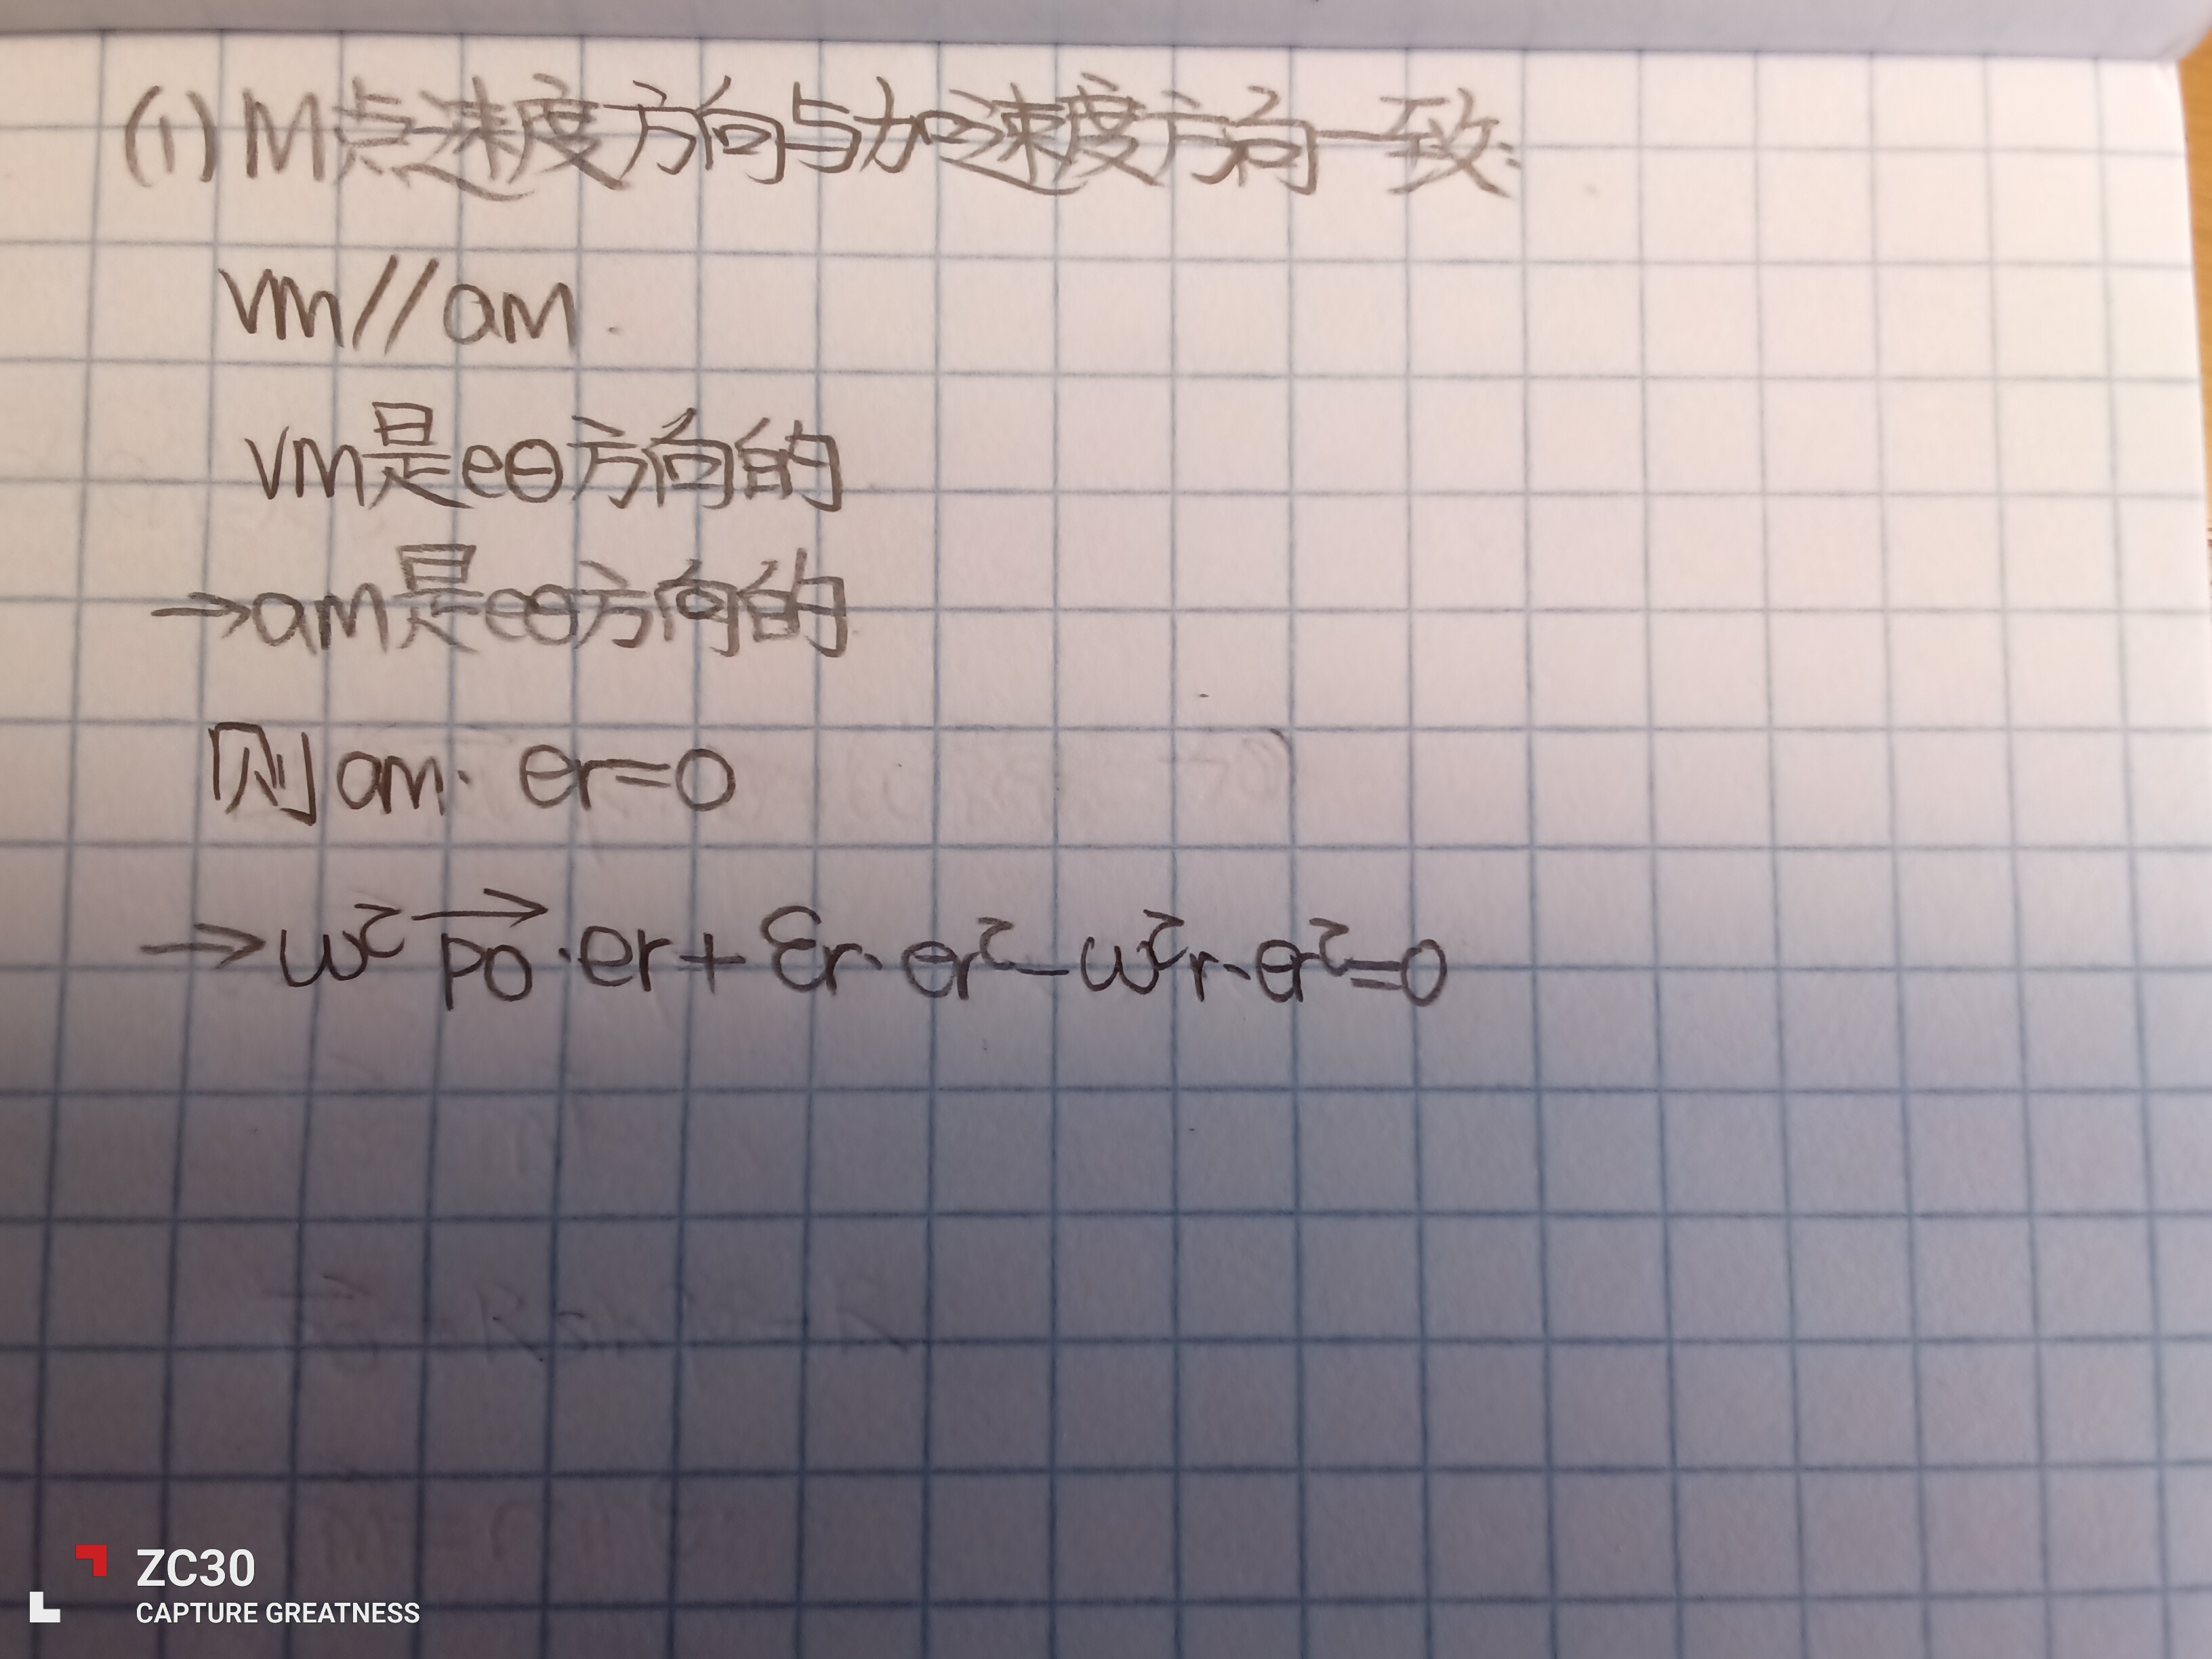 (1) M点速度方向与加速度方向一致:
vm//am.
vm是eθ方向的
→am是eθ方向的
则am· er=0
→ω² \overrightarrow{PO}·er+εr·er²-ω²r·er²=0
ZC30
CAPTURE GREATNESS